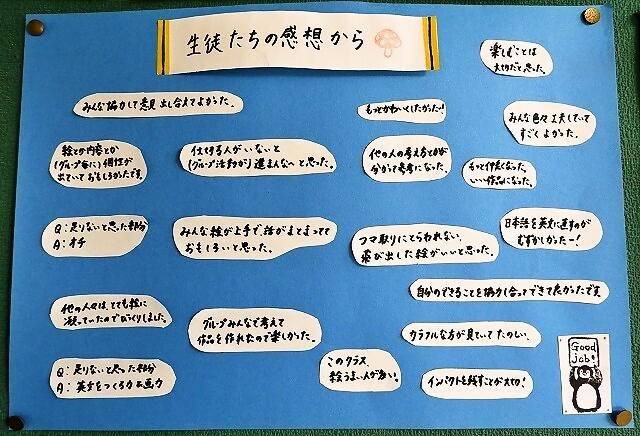 生徒たちの感想から
楽しむことは
大切だと思った。
みんな協力して意見出し合えてよかった。
もっとかわいくしたかった!
みんな色々工夫していて
すごくよかった。
絵とか内容とか
(グループ毎に)個性が
出ていておもしろかったです。
仕切る人がいないと
(グループ活動が)進まんな〜と思った。
他の人の考え方とかが
分かって参考になった。
もっと仲良くなった。
いい作品になった。
Q:足りないと思った部分
A:オチ
みんな絵が上手で、話がまとまってて
おもしろいと思った。
コマ取りにとらわれない、
飛び出した絵がいいと思った。
日本語を英文に直すのが
むずかしかったー!
自分のできることを協力し合ってできて良かったです。
他の人々は、とても絵に
凝っていたのでびっくりしました。
グループみんなで考えて
作品を作れたので楽しかった。
カラフルな方が見ていてたのしい。
Q:足りないと思った部分
A:英文をつくる力&画力
このクラス
絵うまい人が多い!
インパクトを残すことが大切!
Good
job!